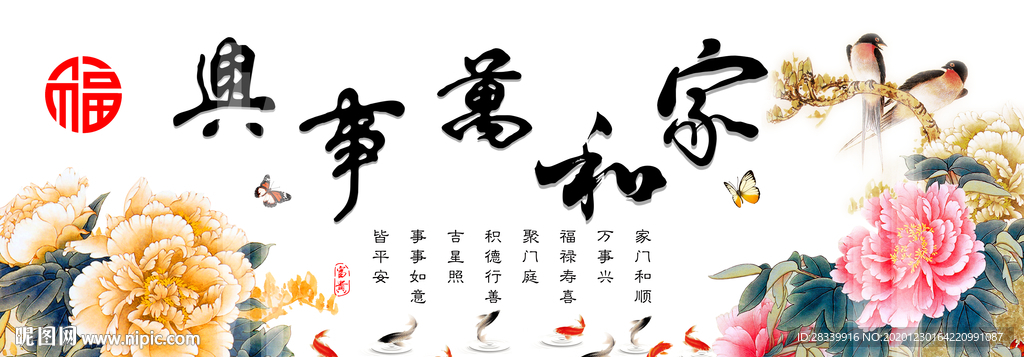 家和萬事興
福
家门和顺
万事兴
福禄寿喜
聚门庭
积德行善
吉星照
事事如意
皆平安
富贵
昵图网 www.nipic.com
ID:28339916 NO:20201230164220991087